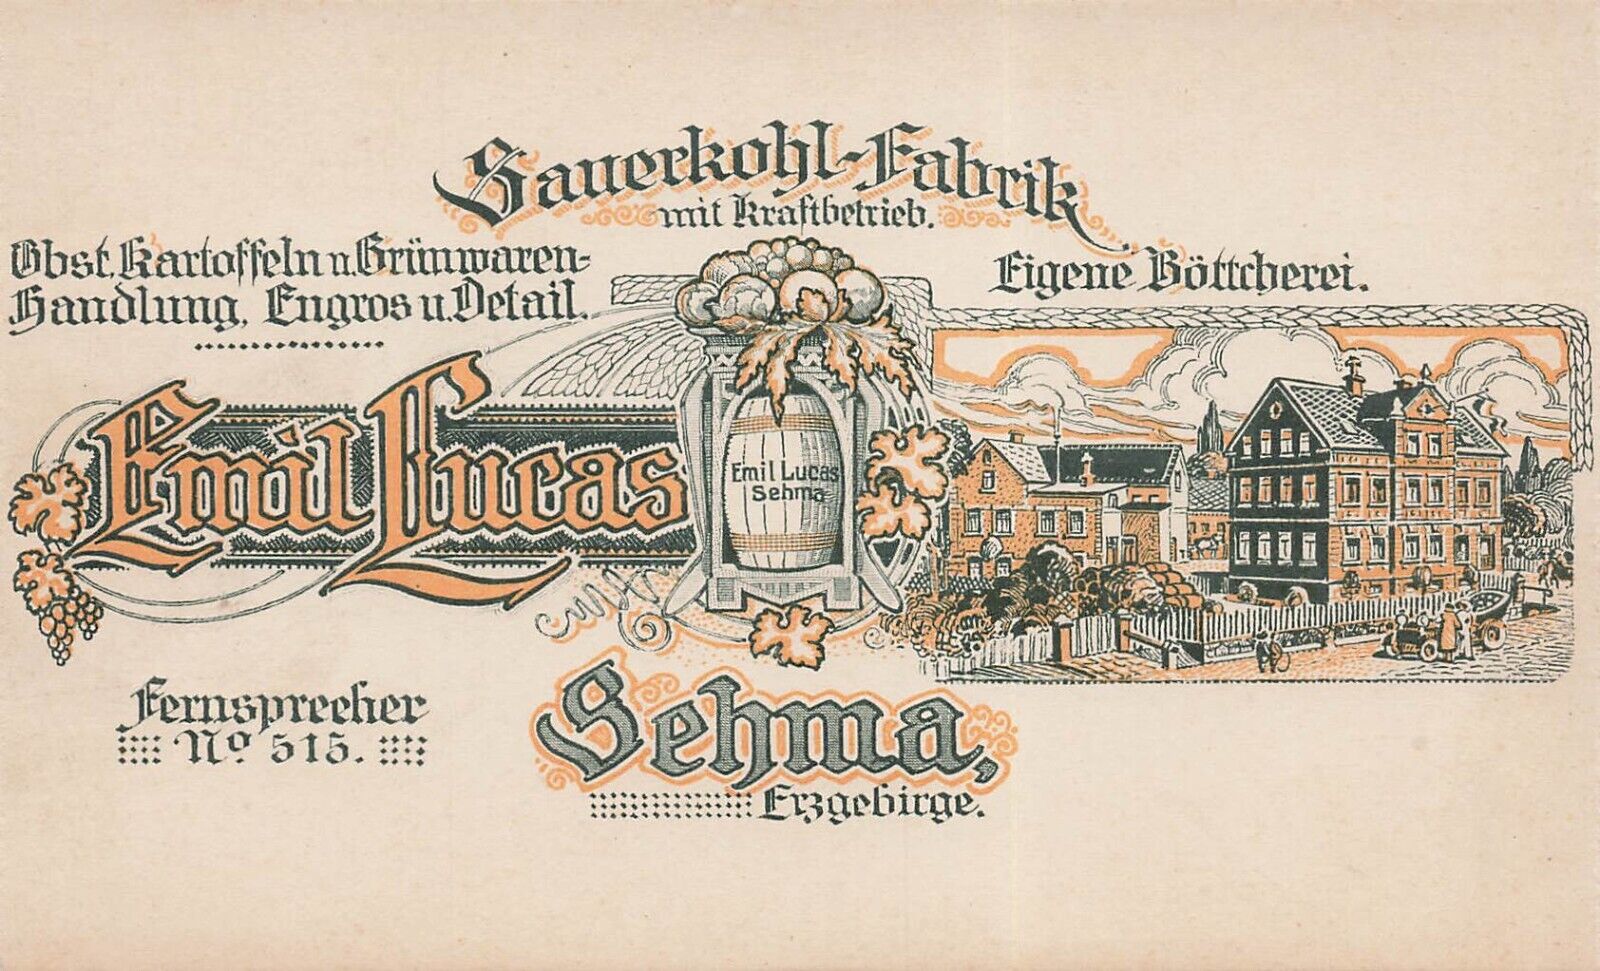 Sauerkohl-Fabrik
mit Kraftbetrieb.
Obst, Kartoffeln u. Grünwaren-
Handlung, Engros u. Detail.
Eigene Böttcherei.
Emil Lucas
Emil Lucas
Sehma
Fernsprecher
No. 515.
Sehma,
Erzgebirge.